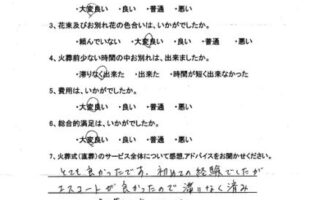 ・大変良い ・良い ・普通 ・悪い
3、花束及びお別れ花の色合いは、いかがでしたか。
・頼んでいない ・大変良い ・良い ・普通 ・悪い
4、火葬前少ない時間の中お別れは、出来ましたか。
・滞りなく出来た ・出来た ・時間が短く出来なかった
5、費用は、いかがでしたか。
・大変良い ・良い ・普通 ・悪い
6、総合的満足は、いかがでしたか。
・大変良い ・良い ・普通 ・悪い
7、火葬式(直葬)のサービス全体について感想、アドバイスをお聞かせください。
とても良かったです。初めての経験でしたが
エスコートが良かったので滞りなく済み